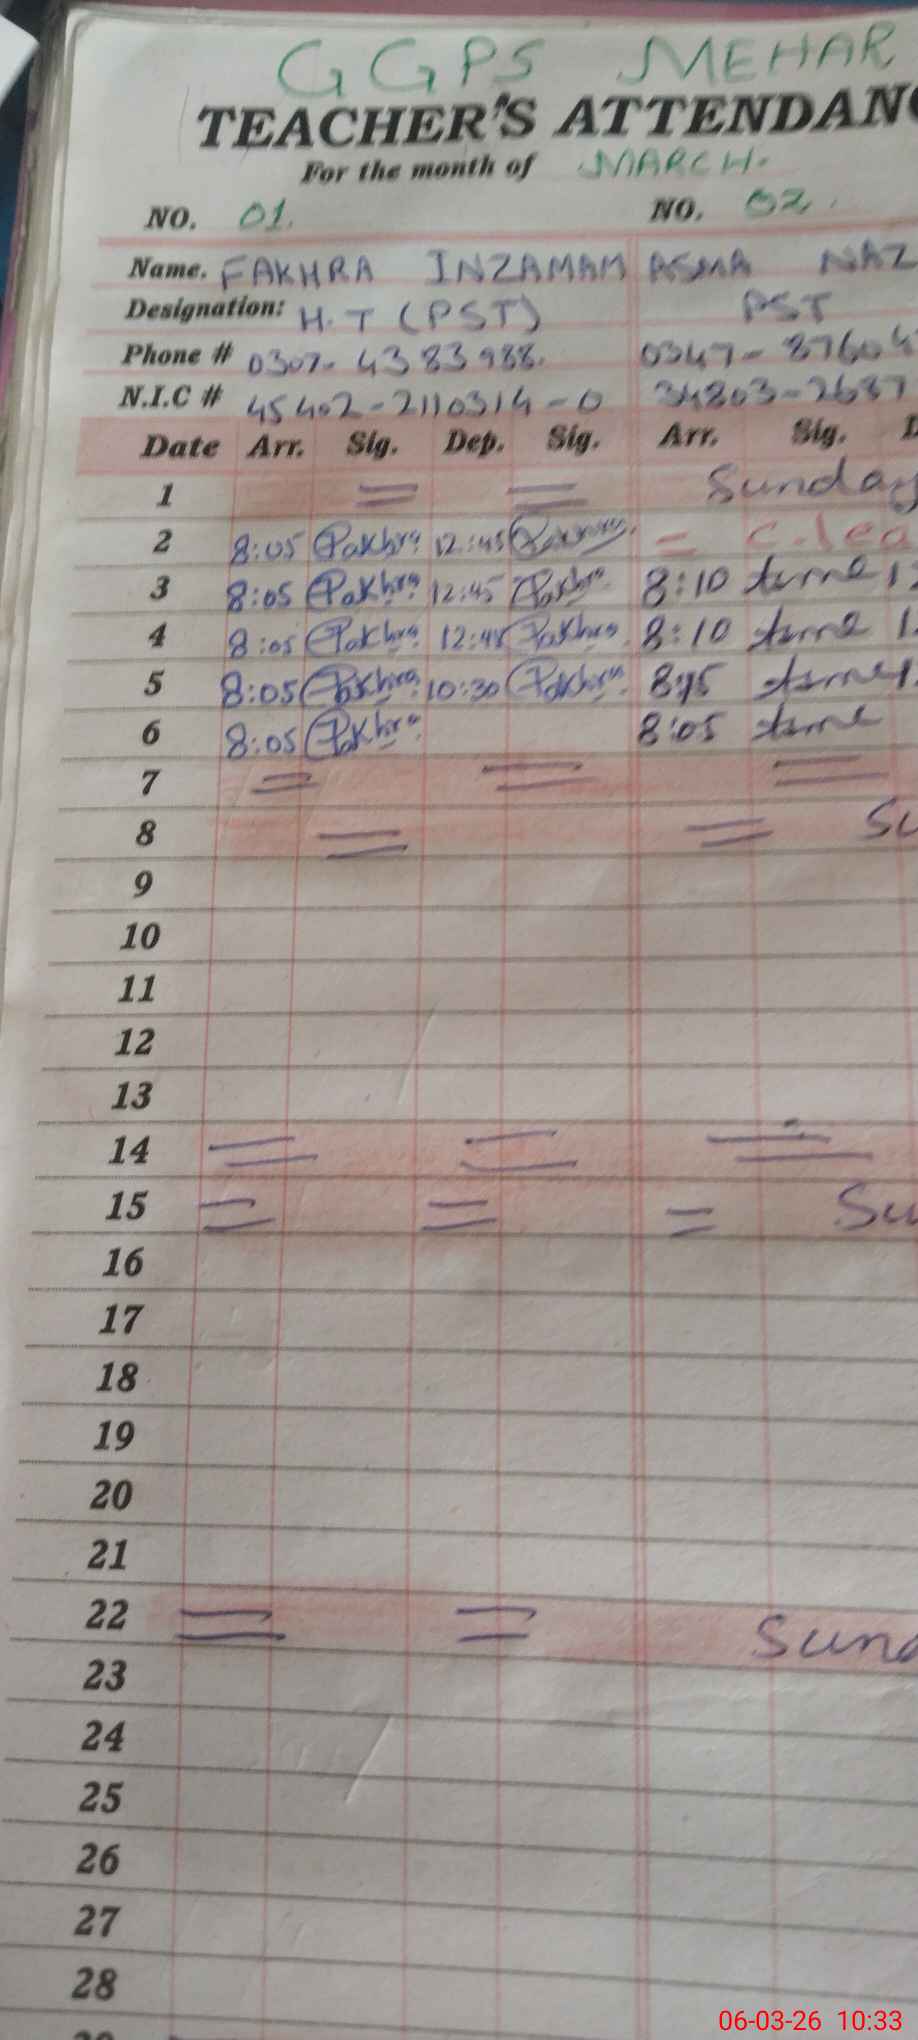 GGPS MEHAR
TEACHER'S ATTENDANC
For the month of MARCH.
NO. 01. NO. 02.
Name. FAKHRA INZAMAM ASMA NAZ
Designation: H.T (PST) PST
Phone # 0307-4383988. 0347-87604
N.I.C # 45402-2110314-0 34803-2687
Date Arr. Sig. Dep. Sig. Arr. Sig. D
1 = = Sunday
2 8:05 Fakhra 12:45 Fakhra = C.lea
3 8:05 Fakhra 12:45 Fakhra 8:10 1
4 8:05 Fakhra 12:45 Fakhra 8:10 1
5 8:05 Fakhra 10:30 Fakhra 8:15 1
6 8:05 Fakhra 8:05
7 = = =
8 = = Su
9
10
11
12
13
14 = = =
15 = = = Su
16
17
18
19
20
21
22 = = Sund
23
24
25
26
27
28
06-03-26 10:33